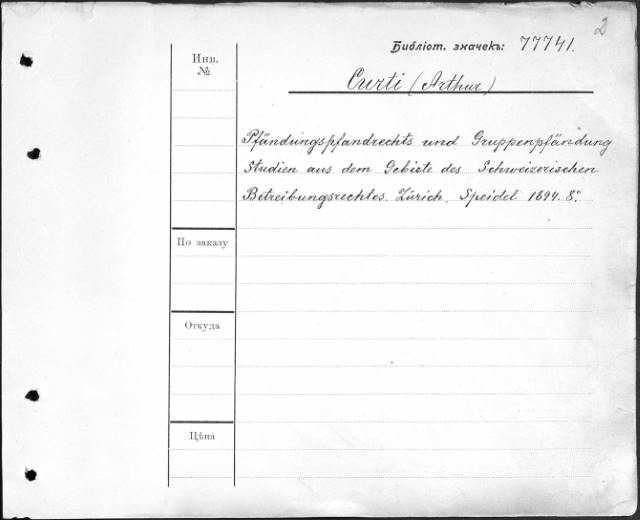 2
Библіот. значекъ: 77741.
Инв.
№
Curti (Arthur)
Pfändungspfandrechts und Gruppenpfändung
Studien aus dem Gebiete des Schweizerischen
Betreibungsrechtes. Zürich, Speidel 1894. 8º.
По заказу
Откуда
Цѣна